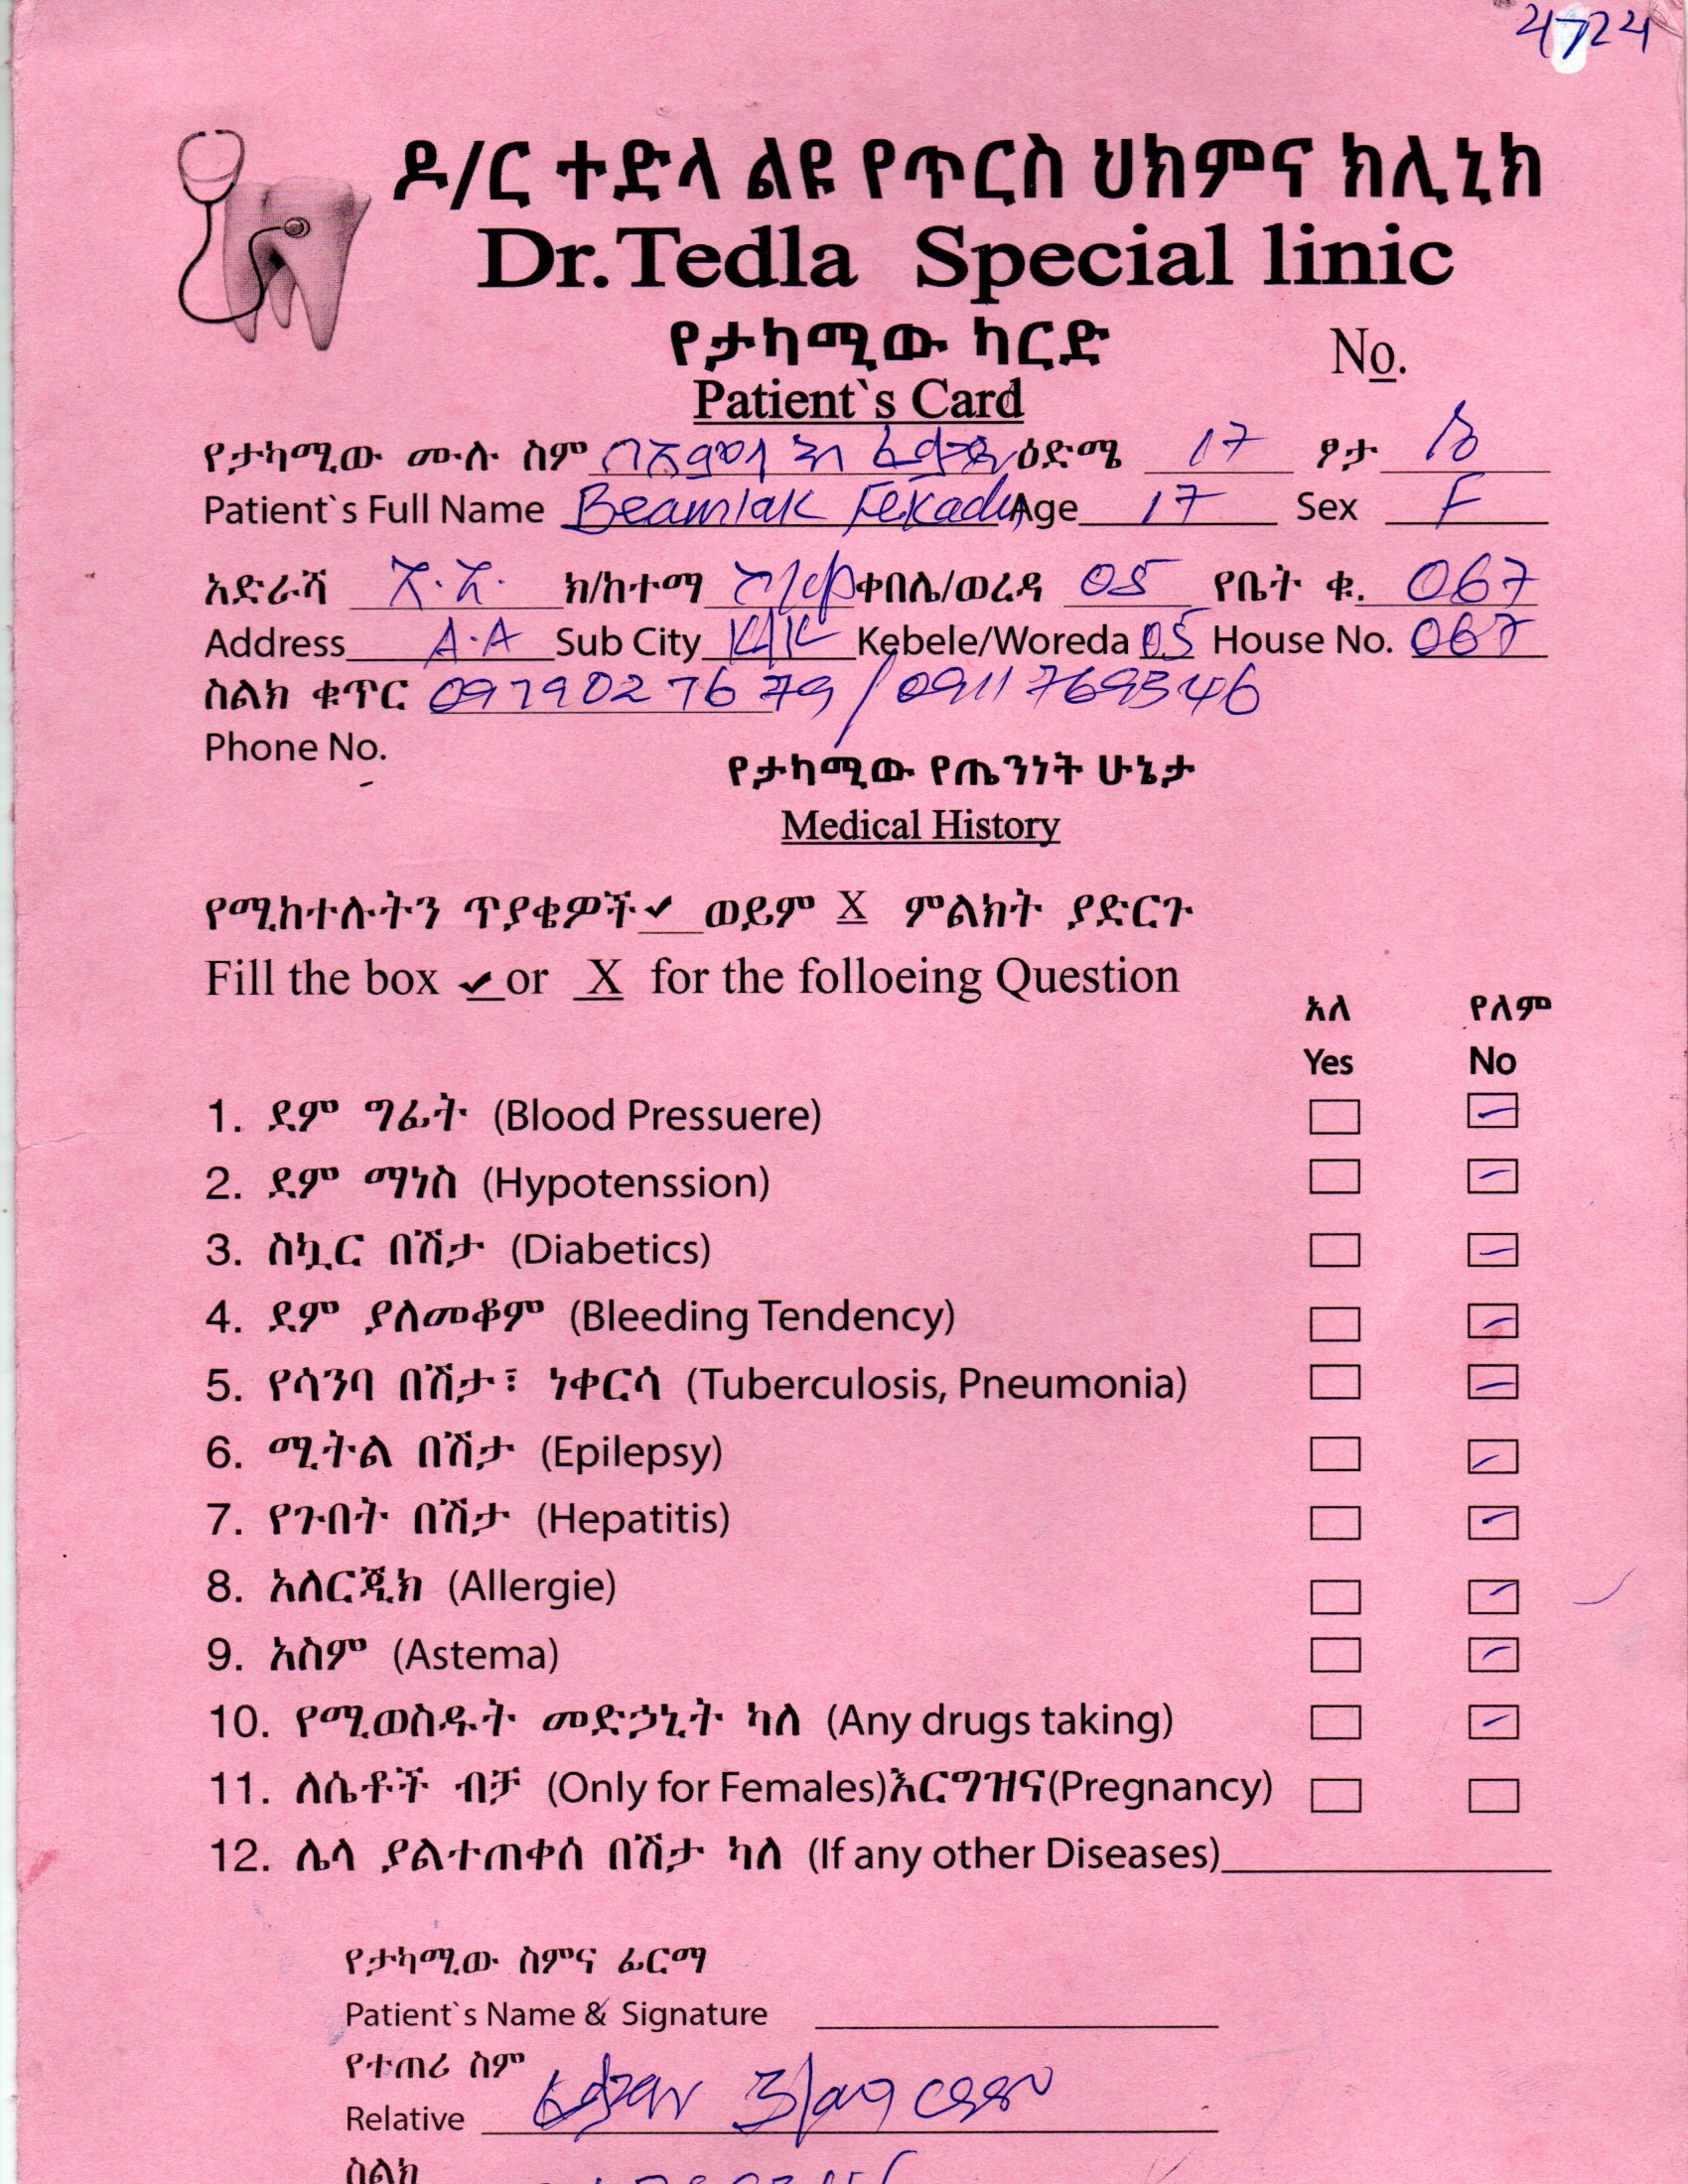 4724
ዶ/ር ተድላ ልዩ የጥርስ ህክምና ክሊኒክ
Dr.Tedla Special linic
የታካሚው ካርድ
No.
Patient`s Card
የታካሚው ሙሉ ስም በአምላክ ፈቃዱ ዕድሜ 17 ፆታ ሴ
Patient`s Full Name Beamlak Fekadu Age 17 Sex F
አድራሻ አ.አ. ክ/ከተማ ቀበሌ/ወረዳ 05 የቤት ቁ. 067
Address A.A Sub City K/K Kebele/Woreda 05 House No. 067
ስልክ ቁጥር 0979027679 / 0911769346
Phone No.
የታካሚው የጤንነት ሁኔታ
Medical History
የሚከተሉትን ጥያቄዎች ✔ ወይም X ምልክት ያድርጉ
Fill the box ✔ or X for the folloeing Question
አለ የለም
Yes No
1. ደም ግፊት (Blood Pressuere)
2. ደም ማነስ (Hypotenssion)
3. ስኳር በሽታ (Diabetics)
4. ደም ያለመቆም (Bleeding Tendency)
5. የሳንባ በሽታ፣ ነቀርሳ (Tuberculosis, Pneumonia)
6. ሚትል በሽታ (Epilepsy)
7. የጉበት በሽታ (Hepatitis)
8. አለርጂክ (Allergie)
9. አስም (Astema)
10. የሚወስዱት መድኃኒት ካለ (Any drugs taking)
11. ለሴቶች ብቻ (Only for Females)እርግዝና(Pregnancy)
12. ሌላ ያልተጠቀሰ በሽታ ካለ (If any other Diseases)
የታካሚው ስምና ፊርማ
Patient`s Name & Signature
የተጠሪ ስም
Relative
ስልክ